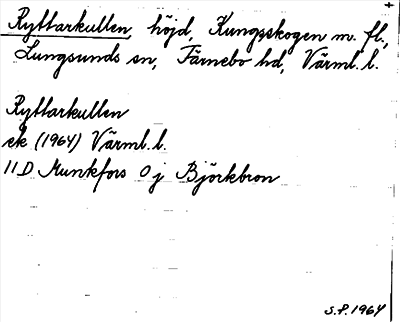 Ryttarkullen, höjd, Kungsskogen m. fl.,
Lungsunds sn, Färnebo hd, Värml. l.
Ryttarkullen
ek (1964) Värml. l.
11 D Munkfors 0 j Björkbron
S.P. 1964